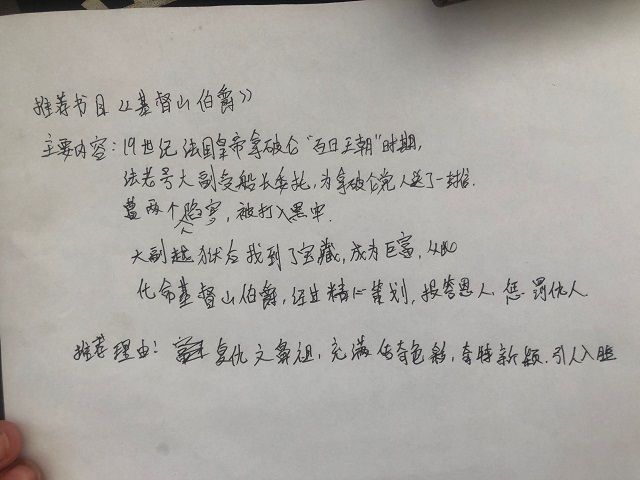 推荐书目《基督山伯爵》
主要内容：19世纪法国皇帝拿破仑"百日王朝"时期，
法老号大副受船长委托，为拿破仑党人送了一封信.
两个小人陷害，被打入黑牢.
大副越狱后找到了宝藏，成为巨富，从此
化命基督山伯爵，经过精心策划，报答恩人.惩罚仇人.
推荐理由：复仇文鼻祖，充满传奇色彩，奇特新颖.引人入胜